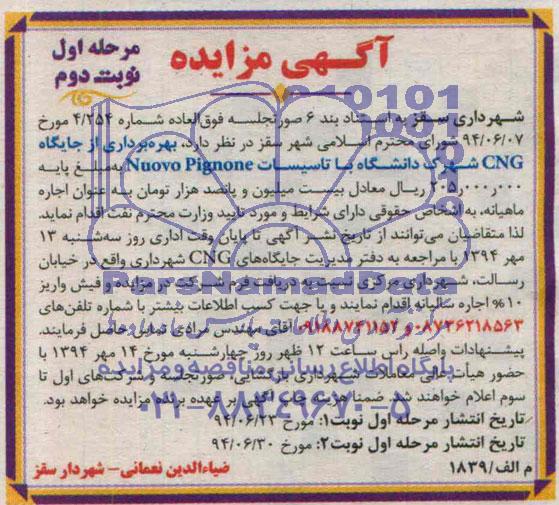 آگهی مزایده
مرحله اول
نوبت دوم
شهرداری سقز به استناد بند ۶ صورتجلسه فوق‌العاده شماره ۴/۲۵۴ مورخ
۹۴/۰۶/۰۷ شورای محترم اسلامی شهر سقز در نظر دارد، بهره‌برداری از جایگاه
CNG شهرک دانشگاه با تاسیسات Nuovo Pignone به‌مبلغ پایه
۲۰۵٫۰۰۰٫۰۰۰ ریال معادل بیست میلیون و پانصد هزار تومان به عنوان اجاره
ماهیانه، به اشخاص حقوقی دارای شرایط و مورد تایید وزارت محترم نفت اقدام نماید.
لذا متقاضیان می‌توانند از تاریخ نشر آگهی تا پایان وقت اداری روز سه‌شنبه ۱۳
مهر ۱۳۹۴ با مراجعه به دفتر مدیریت جایگاه‌های CNG شهرداری واقع در خیابان
رسالت، شهرداری مرکزی نسبت به دریافت فرم شرکت در مزایده و فیش واریز
۱۰% اجاره سالیانه اقدام نمایند و یا جهت کسب اطلاعات بیشتر با شماره تلفن‌های
۰۸۷۳۶۲۱۸۵۶۳ و ۰۹۱۸۸۷۴۱۱۵۲ آقای مهندس مرادی تماس حاصل فرمایند.
پیشنهادات واصله راس ساعت ۱۲ ظهر روز چهارشنبه مورخ ۱۴ مهر ۱۳۹۴ با
حضور هیأت عالی معاملات شهرداری بازگشایی، صورتجلسه و شرکت‌های اول تا
سوم اعلام خواهند شد. ضمنا هزینه چاپ آگهی بر عهده برنده مزایده خواهد بود.
تاریخ انتشار مرحله اول نوبت۱: مورخ ۹۴/۰۶/۲۳
تاریخ انتشار مرحله اول نوبت۲: مورخ ۹۴/۰۶/۳۰
م الف/۱۸۳۹
ضیاءالدین نعمانی– شهردار سقز
ParsNamadData
پایگاه اطلاع رسانی مناقصه و مزایده
۰۲۱-۸۸۳۴۹۶۷۰-۵